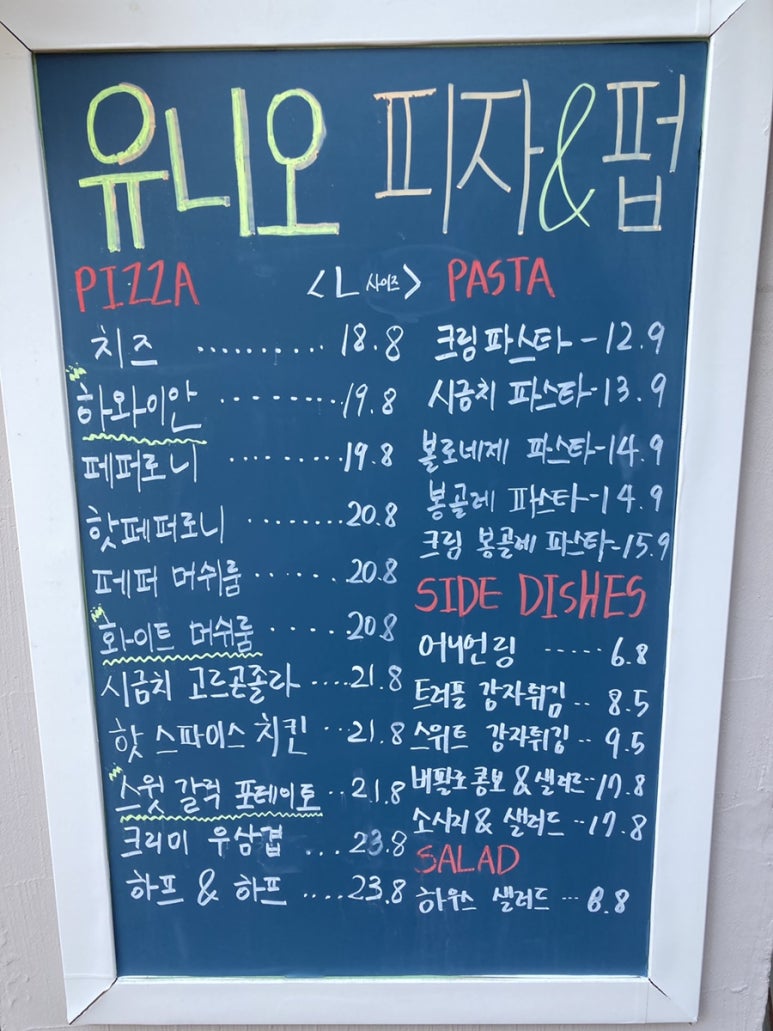 유니오 피자&펍
PIZZA <L 사이즈>
치즈 .......... 18.8
하와이안 ........ 19.8
페퍼로니 ........ 19.8
핫페퍼로니 ........ 20.8
페퍼 머쉬룸 ....... 20.8
화이트 머쉬룸 ..... 20.8
시금치 고르곤졸라 .... 21.8
핫 스파이스 치킨 ... 21.8
스윗 갈릭 포테이토 .. 21.8
크리미 우삼겹 ... 23.8
하프 & 하프 ..... 23.8
PASTA
크림 파스타 - 12.9
시금치 파스타 - 13.9
볼로네제 파스타 - 14.9
봉골레 파스타 - 14.9
크림 봉골레 파스타 - 15.9
SIDE DISHES
어니언링 ..... 6.8
트러플 감자튀김 .. 8.5
스위트 감자튀김 .. 9.5
버팔로콤보 & 샐러드 .. 17.8
소시지 & 샐러드 .. 17.8
SALAD
하우스 샐러드 ... 8.8